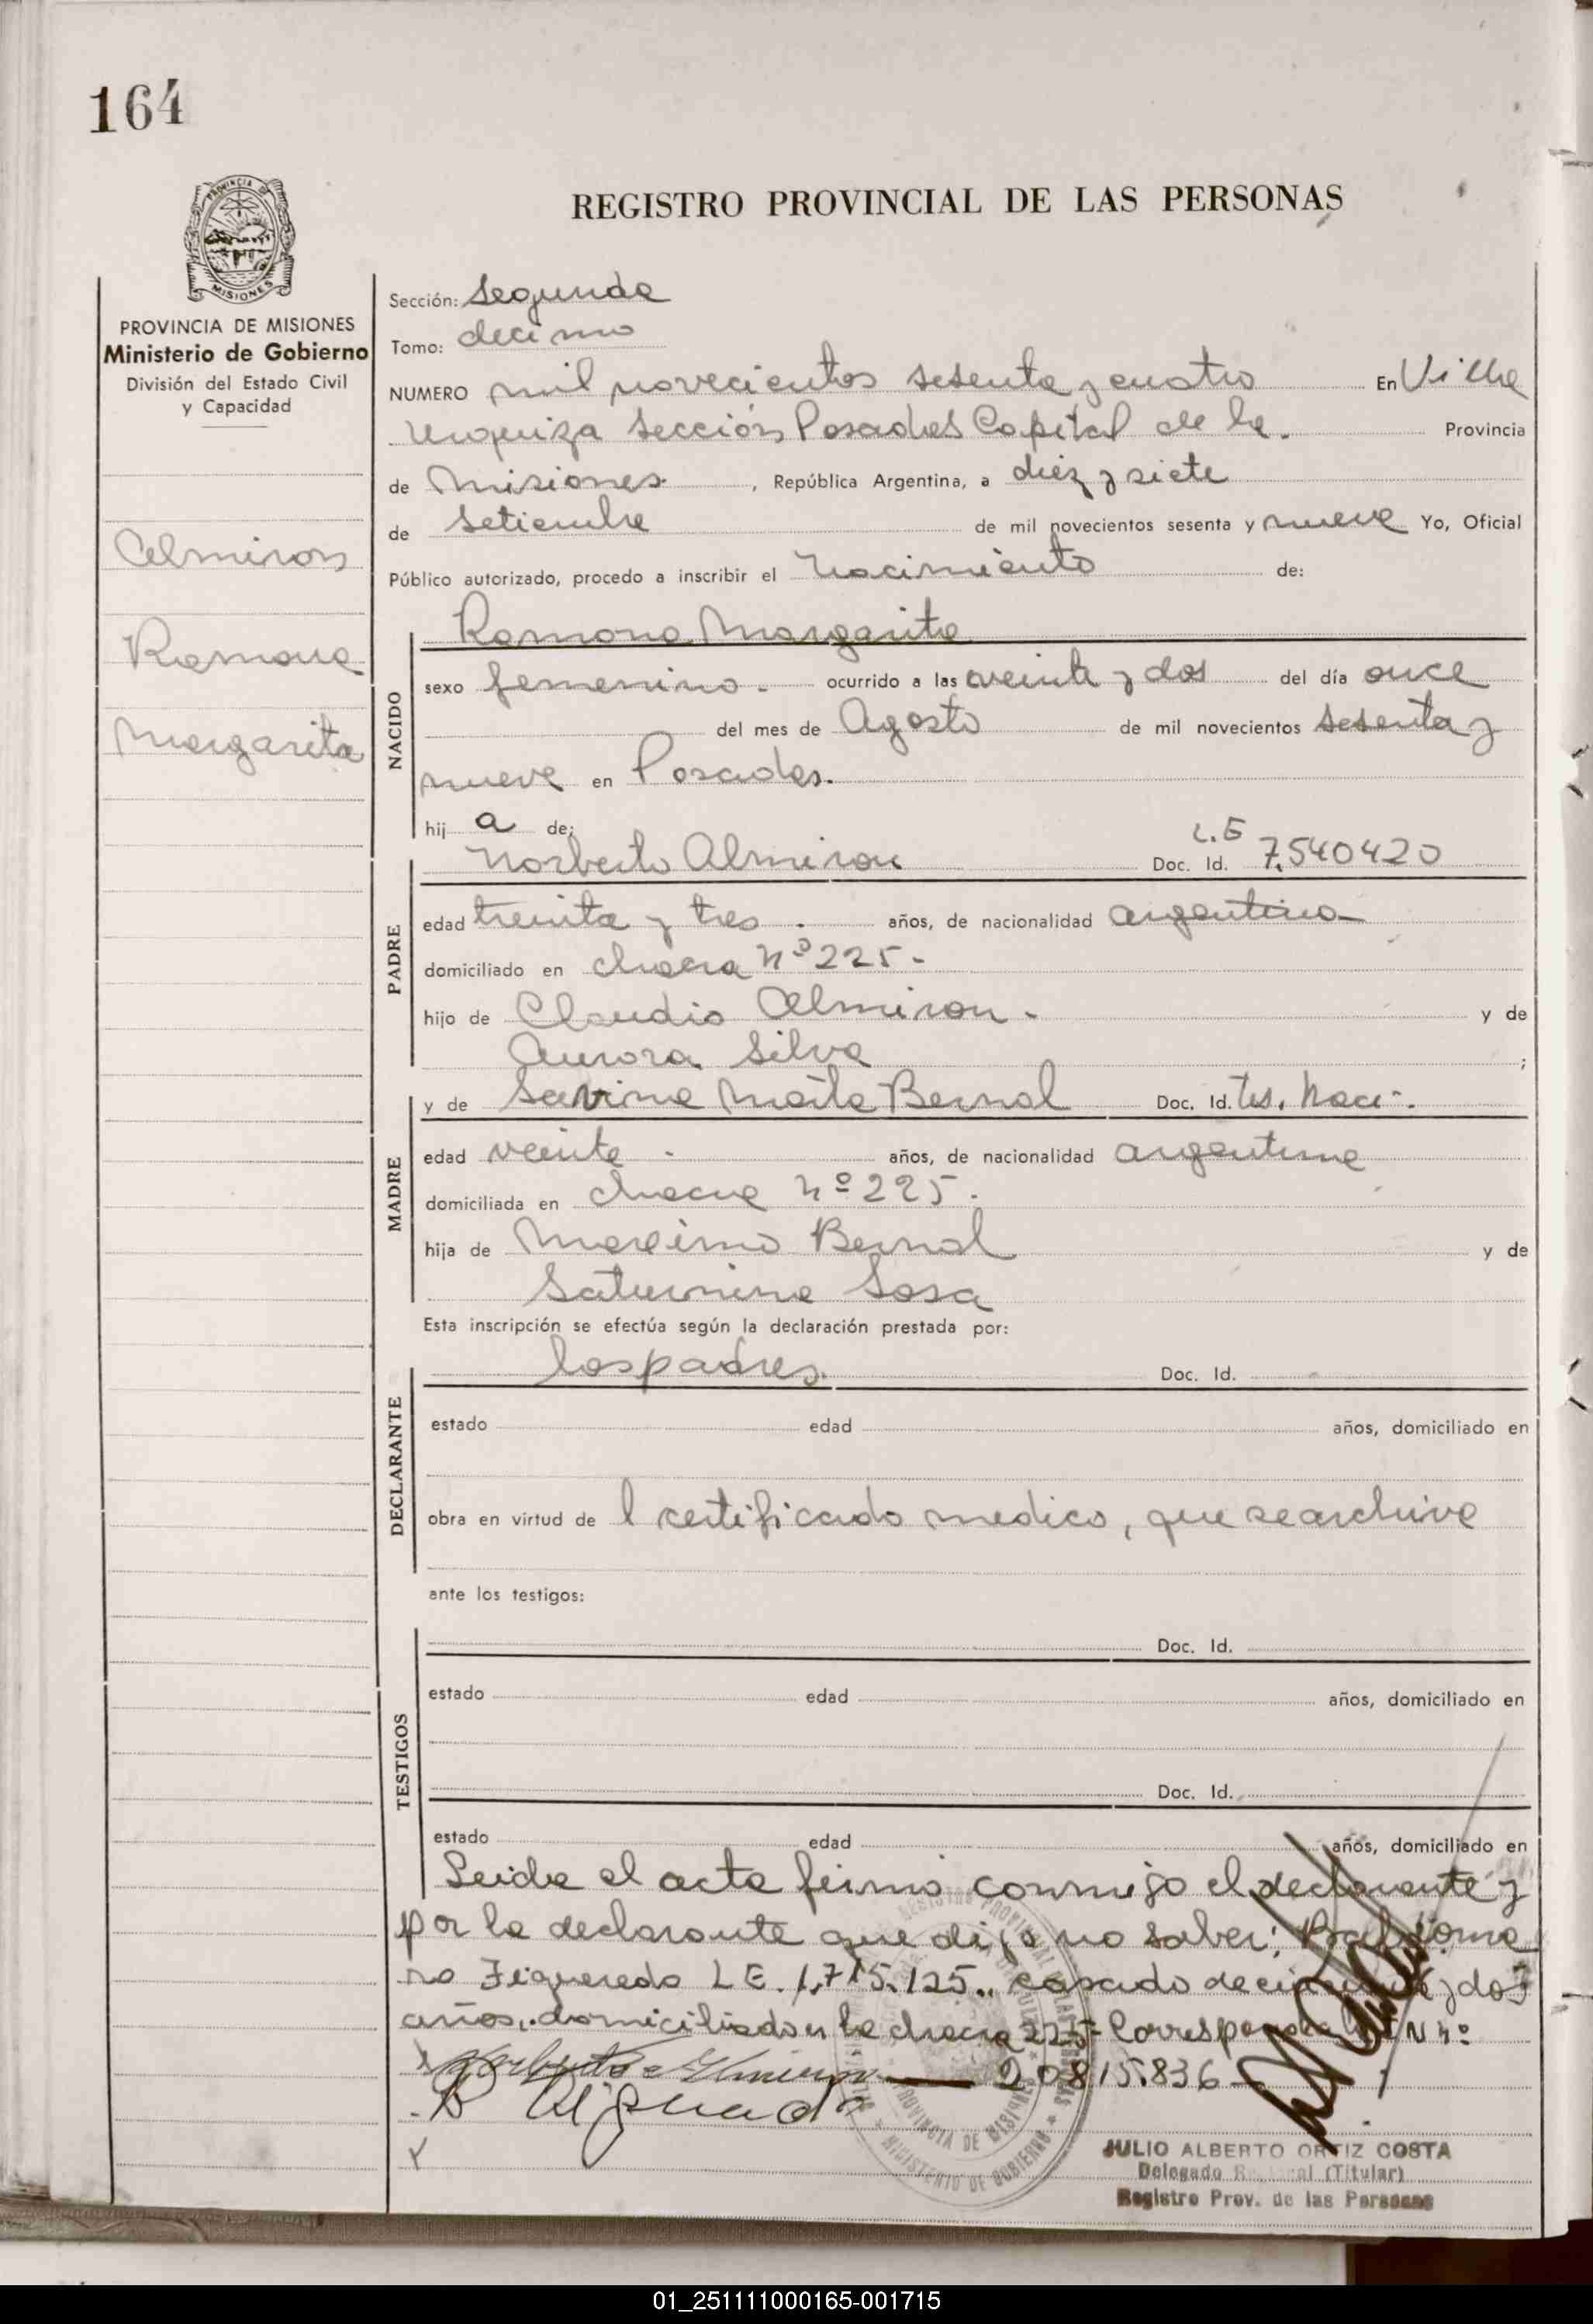 164
PROVINCIA DE
MISIONES
REGISTRO PROVINCIAL DE LAS PERSONAS
PROVINCIA DE MISIONES
Ministerio de Gobierno
División del Estado Civil
y Capacidad
Almiron
Ramona
Margarita
Sección: Segunda
Tomo: decimo
NUMERO mil novecientos sesenta y cuatro En Villa
Urquiza Sección Posadas Capital de la. Provincia
de Misiones. , República Argentina, a diez y siete
de Setiembre de mil novecientos sesenta y nueve Yo, Oficial
Público autorizado, procedo a inscribir el Nacimiento de:
NACIDO
Ramona Margarita
sexo femenino. ocurrido a las veinte y dos del día once
del mes de Agosto de mil novecientos sesenta y
nueve en Posadas.
hij a de:
PADRE
Norberto Almiron Doc. Id. L.E 7.540420
edad treinta y tres. años, de nacionalidad argentino
domiciliado en chacra Nº 225.
hijo de Claudio Almiron. y de
Aurora Silva ;
MADRE
y de Savina Bernal Doc. Id. tes. Naci.
edad veinte. años, de nacionalidad argentina
domiciliada en chacra nº 225.
hija de Maximo Bernal y de
Saturnina Sosa
Esta inscripción se efectúa según la declaración prestada por:
DECLARANTE
los padres. Doc. Id.
estado edad años, domiciliado en
obra en virtud de l certificado medico, que se archiva
ante los testigos:
TESTIGOS
Doc. Id.
estado edad años, domiciliado en
Doc. Id.
estado edad años, domiciliado en
Leida el acta firmó conmigo el declarante y
por la declarante que dijo no saber:
ro Figueredo L E. 1.715.125., casado de y dos
años, domiciliado en la chacra 225- Corresponde Nº
20815.836
PROVINCIA DE MISIONES
MINISTERIO DE GOBIERNO
JULIO ALBERTO ORTIZ COSTA
Delegado (Titular)
Registro Prov. de las Personas
01_251111000165-001715